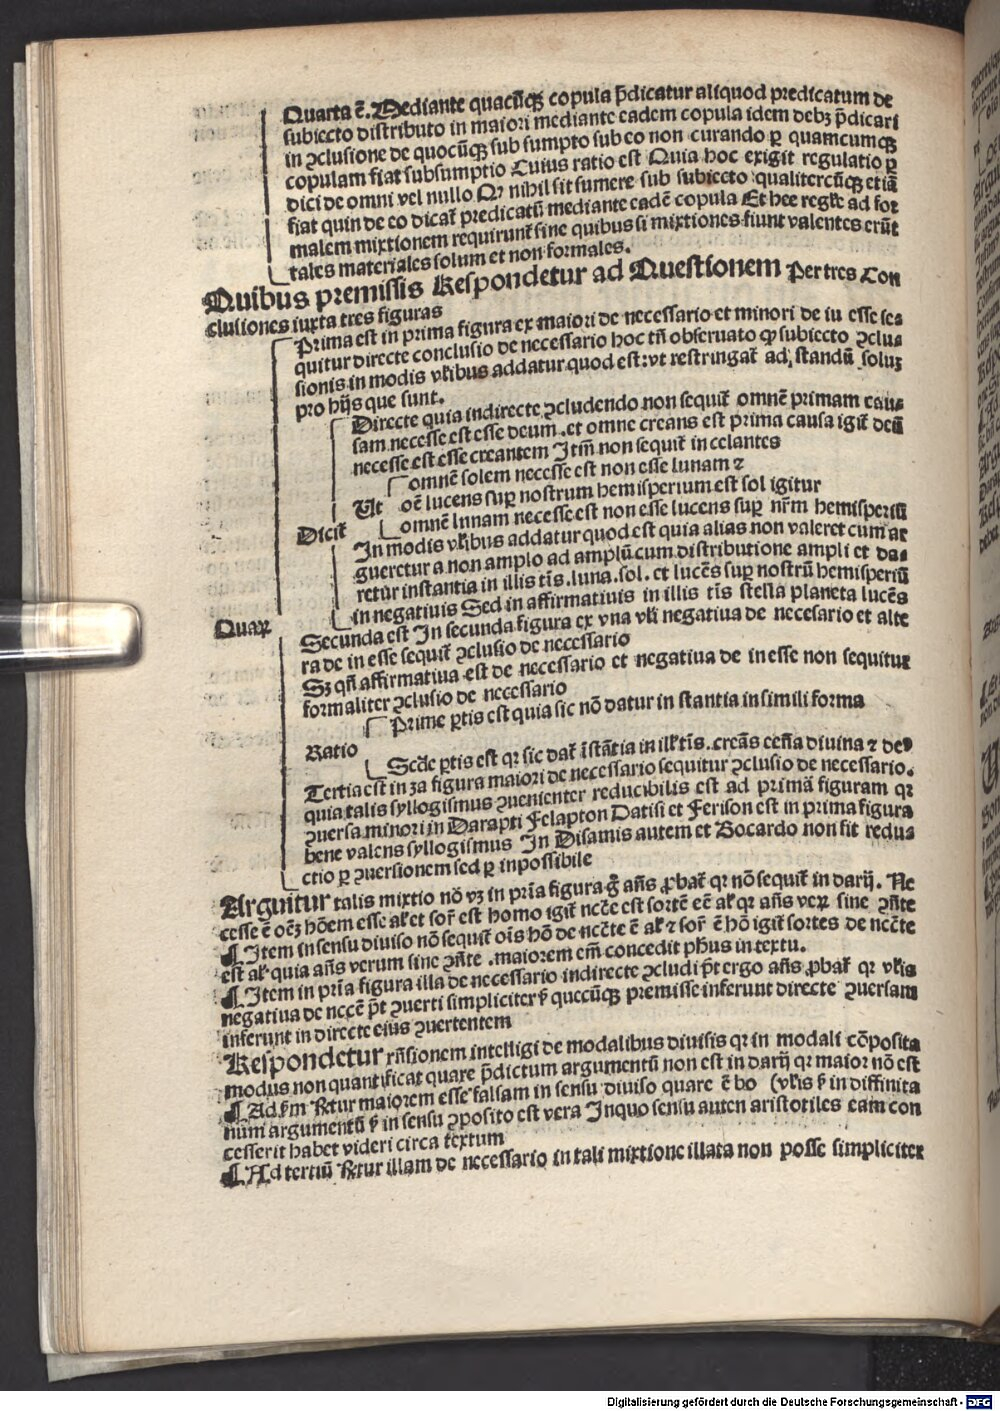 Quarta ē. Mediante quacūqꝫ copula p̄dicatur aliquod predicatum de
subiecto distributo in maiori mediante eadem copula idem debꝫ p̄dicari
in ↄclusione de quocūqꝫ sub sumpto sub eo non curando ꝑ quamcumqꝫ
copulam fiat subsumptio Cuius ratio est Quia hoc exigit regulatio ꝑ
dici de omni vel nullo Qꝛ nihil sit sumere sub subiecto qualitercūqꝫ etiā
fiat quin de eo dicat̄ predicatū mediante eadē copula Et hee regl̄e ad for
malem mixtionem requirunt̄ sine quibus si mixtiones fiunt valentes erūt
tales materiales solum et non formales.
Quibus premissis Respondetur ad Questionem Per tres Con
clusiones iuxta tres figuras
Prima est in prima figura ex maiori de necessario et minori de in esse se⸗
quitur directe conclusio de necessario hoc tn̄ obseruato ꝙ subiecto ↄclu⸗
sionis in modis vl̄ibus addatur quod est: vt restringat̄ ad standū soluꝫ
pro hijs que sunt.
Directe quia indirecte ↄcludendo non sequit̄ omnē primam cau⸗
sam necesse est esse deum. et omne creans est prima causa igit̄ deū
necesse est esse creantem Itm̄ non sequit̄ in celantes
omnē solem necesse est non esse lunam ⁊
Ut oē lucens sup̄ nostrum hemisperium est sol igitur
Dicit̄ omnē lnnam necesse est non esse lucens sup̄ nr̄m hemisperiū
In modis vl̄ibus addatur quod est quia alias non valeret cum ar
gueretur a non amplo ad amplū cum distributione ampli et da⸗
retur instantia in illis tīs. luna. sol. et lucēs sup̄ nostrū hemisperiū
in negatiuis Sed in affirmatiuis in illis tīs stella planeta lucēs
Quaꝝ
Secunda est In secunda figura ex vna vl̄i negatiua de necesario et alte
ra de in esse sequit̄ ↄclusio de necessario
Sꝫ qn̄ affirmatiua est de necessario et negatiua de in esse non sequitur
formaliter ↄclusio de necessario
Prime ꝑtis est quia sic nō datur in stantia in simili forma
Ratio
Scd̄e ꝑtis est qꝛ sic dat̄ īstātia in ill̄ tīs. creās cen̄a diuina ⁊ deꝰ
Tertia est in 3a figura maiori de necessario sequitur ↄclusio de necessario.
quia talis syllogismus ↄuenienter reducibilis est ad primā figuram qꝛ
ↄuersa minori in Darapti Felapton Datisi et Ferison est in prima figura
bene valens syllogismus In Disamis autem et Bocardo non fit redu⸗
ctio ꝑ ↄuersionem sed ꝑ inpossibile
Arguitur talis mixtio nō vꝫ in pr̄ia figura gͦ an̄s ꝓbat̄ qꝛ nō sequit̄ in darij. Ne
cesse ē oēꝫ hōem esse al̄ et sor̄ est homo igit̄ nccē est sortē eē al̄ qꝛ an̄s veꝝ sine ↄn̄te
¶ Item in sensu diuiso nō sequit̄ oīs hō de nccē ē al̄ ⁊ sor̄ ē hō igit̄ sortes de nccē
est al̄ quia an̄s verum sine ↄn̄te. maiorem em̄ concedit ph̄us in textu.
¶ Item in pr̄ia figura illa de necessario indirecte ↄcludi p̄t ergo an̄s ꝓbat̄ qꝛ vl̄is
negatiua de nccē p̄t ↄuerti simpliciter ⁊ quecūqꝫ premisse inferunt directe ↄuersam
inferunt in directe eius ↄuertentem
Respondetur rn̄sionem intelligi de modalibus diuisis qꝛ in modali cōposita
modus non quantificat quare p̄dictum argumentū non est in darij qꝛ maior nō est
¶ Ad pͥm Rn̄tur maiorem esse falsam in sensu diuiso quare ē bo (vl̄is sꝫ in diffinita
num argumentū sꝫ in sensu ↄposito est vera In quo sensu auten aristotiles eam con
cesserit habet videri circa textum
¶ Ad tertiū Rn̄tur illam de necessario in tali mixtione illata non posse simpliciter
Digitalisierung gefördert durch die Deutsche Forschungsgemeinschaft - DFG